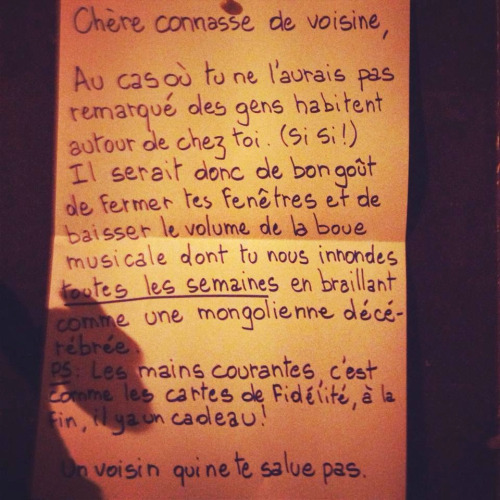 Chère connasse de voisine,
Au cas où tu ne l'aurais pas
remarqué des gens habitent
autour de chez toi. (Si si!)
Il serait donc de bon goût
de fermer tes fenêtres et de
baisser le volume de la boue
musicale dont tu nous innondes
toutes les semaines en braillant
comme une mongolienne décé-
rébrée.
PS: Les mains courantes, c'est
comme les cartes de fidélité, à la
fin, il y a un cadeau!
Un voisin qui ne te salue pas.